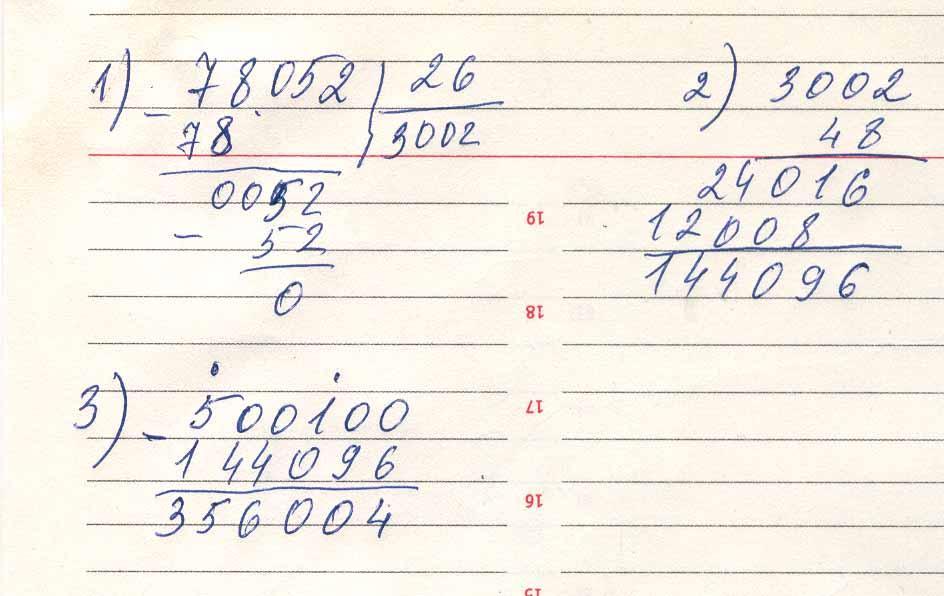 1) - 78052 | 26
78 3002
0052
- 52
0
2) 3002
48
24016
12008
144096
3) - 500100
144096
356004
19
18
17
16
15